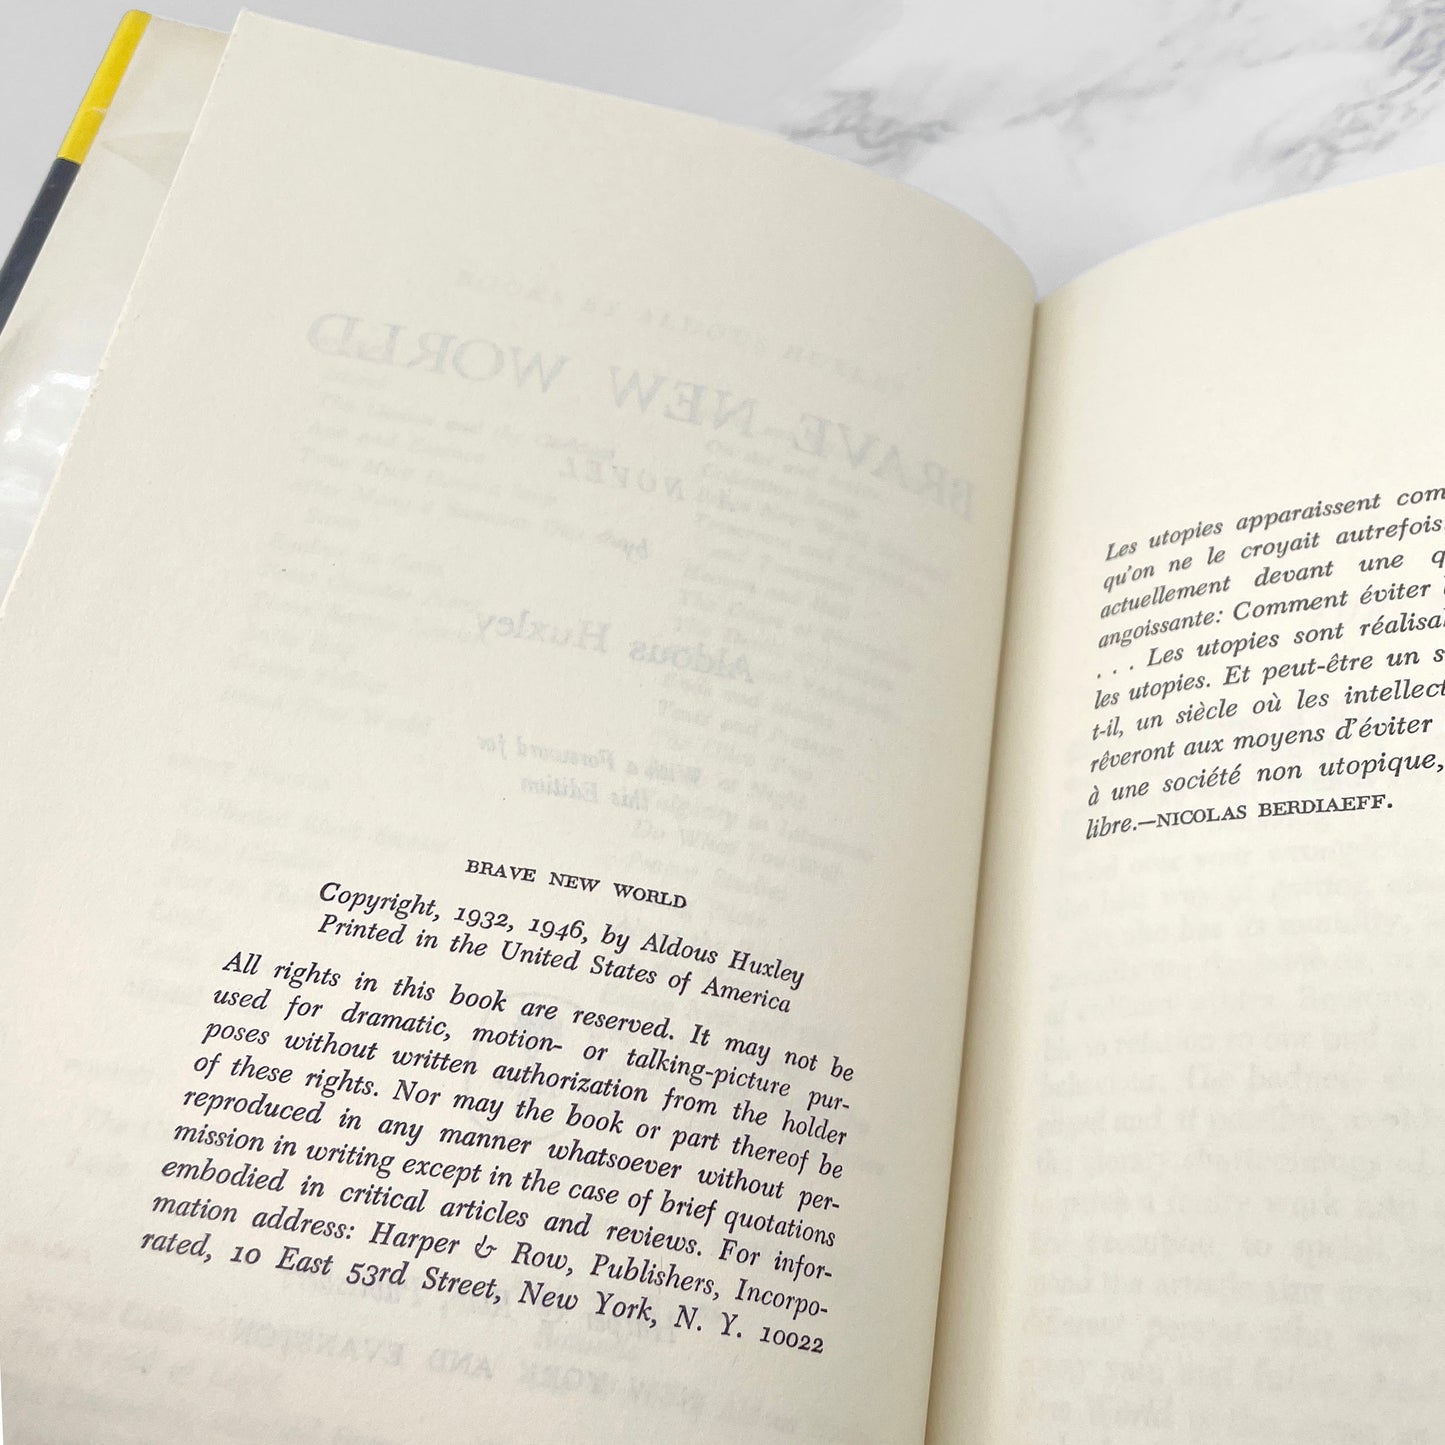 BRAVE NEW WORLD
Copyright, 1932, 1946, by Aldous Huxley
Printed in the United States of America
All rights in this book are reserved. It may not be
used for dramatic, motion- or talking-picture pur-
poses without written authorization from the holder
of these rights. Nor may the book or part thereof be
reproduced in any manner whatsoever without per-
mission in writing except in the case of brief quotations
embodied in critical articles and reviews. For infor-
mation address: Harper & Row, Publishers, Incorpo-
rated, 10 East 53rd Street, New York, N. Y. 10022
Les utopies apparaissent com
qu'on ne le croyait autrefois.
actuellement devant une q
angoissante: Comment éviter
. . . Les utopies sont réalisa
les utopies. Et peut-être un s
t-il, un siècle où les intellect
rêveront aux moyens d'éviter
à une société non utopique,
libre.—NICOLAS BERDIAEFF.
BRAVE NEW WORLD
A NOVEL
by
Aldous Huxley
With a Foreword for
this Edition
NEW YORK AND EVANSTON